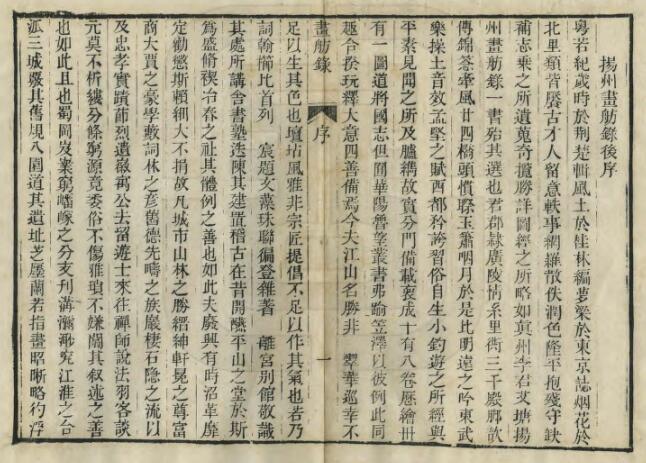 揚州畫舫錄後序
粵若紀歲時於荆楚輯風土於桂林編夢梁於東京誌烟花於
北里類皆騷古才人留意軼事網羅散佚潤色隆平抱殘守缺
補志乘之所遺蒐奇攬勝詳圖經之所略如眞州李君艾塘揚
州畫舫錄一書殆其選也君郡隸廣陵情系里衖三千殿腳歌
傳錦纜牽風廿四橋頭慣聆玉簫咽月於是比明遠之吟東武
樂操土音效孟堅之賦西都矜誇習俗自生小釣遊之所經與
平素見聞之所及臚講故實分門備載裒成十有八卷歷繪卅
有一圖道將國志但圖華陽魯望叢書弗踰笠澤以彼例此同
趣合揆玩繹大意四善備焉今夫江山名勝非 翠華巡幸不
畫舫錄 序 一
足以生其色也壇坫風雅非宗匠提倡不足以作其氣也若乃
詞翰備比首列 宸題文藻珠聯偏登雜著 離宮別館敬識
其處所講舍書塾迭陳其建置稽古在昔開讌平山之堂於斯
爲盛脩禊冶春之社其體例之善也如此夫廢興有時沿革靡
定勸懲斯賴細大不捐故凡城市山林之勝縉紳軒冕之尊富
商大賈之豪學藪詞林之彥舊德先疇之族嚴棲石隱之流以
及忠孝實蹟節烈遺徽寓公去留遊士來往禪師說法羽客談
元莫不析縷分條窮源竟委俗不傷雅瑣不嫌闒其叙述之善
也如此且也蜀岡岌嶪窮蟠嶓之分支刋溝瀰渺究江淮之合
派三城嚴其舊規八園道其遺址芝廛蘭若指畫昭晰略彴浮